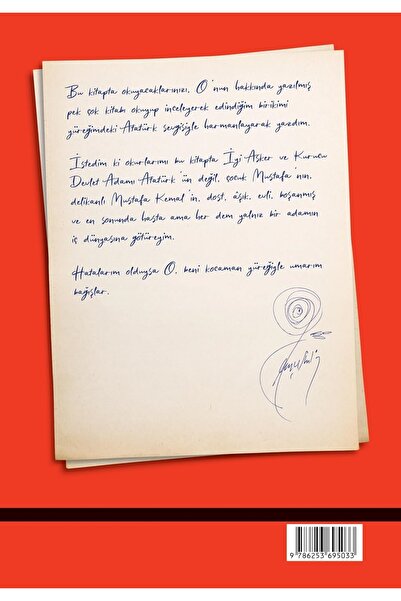 Bu kitapta okuyacaklarınızı, O'nun hakkında yazılmış
pek çok kitabı okuyup inceleyerek edindiğim birikimi
yüreğimdeki Atatürk sevgisiyle harmanlayarak yazdım.
İstedim ki okurlarımı bu kitapta İyi Asker ve Kurucu
Devlet Adamı Atatürk'ün değil, çocuk Mustafa'nın,
delikanlı Mustafa Kemal'in, dost, âşık, evli, boşanmış
ve en sonunda hasta ama her dem yalnız bir adamın
iç dünyasına götüreyim.
Hatalarım olduysa O, beni kocaman yüreğiyle umarım
bağışlar.
9 786253 695033